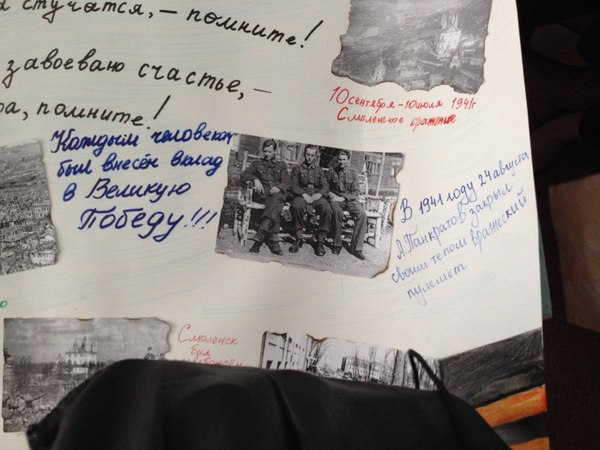 стучатся, – помните!
завоеваю счастье, –
помните!
10 сентября – 10 июля 1941г
Смоленское сражение
Каждым человеком
был внесён вклад
в Великую
Победу!!!
В 1941 году 24 августа
А.Панкратов закрыл
своим телом вражеский
пулемёт
Смоленск
был